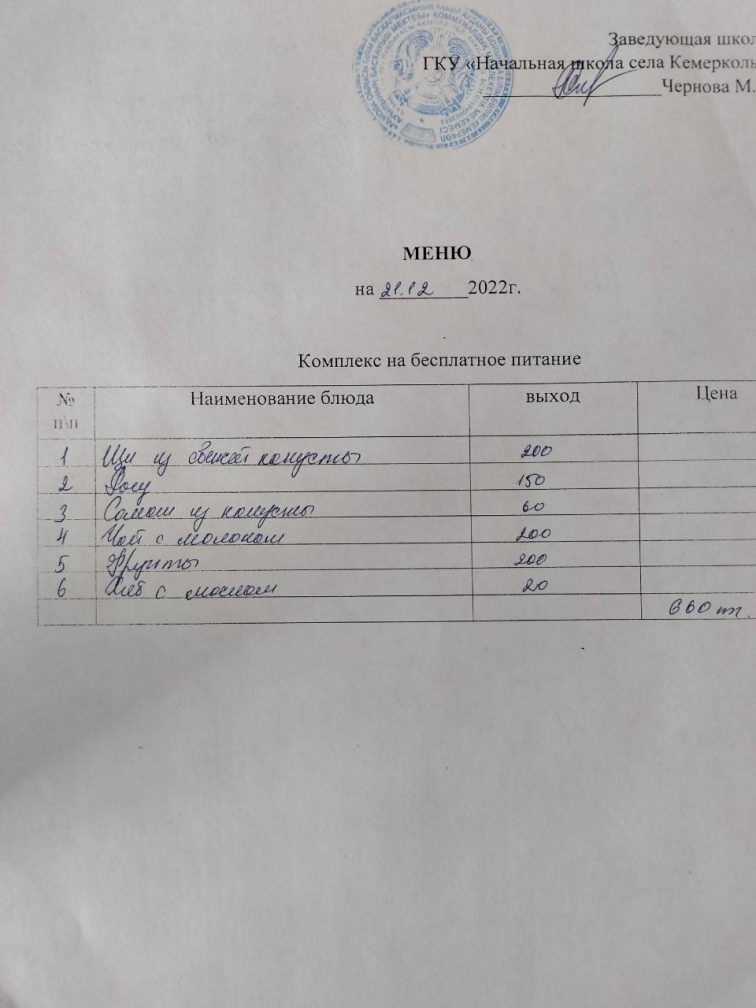 Заведующая школ
ГКУ «Начальная школа села Кемерколь
Чернова М.
МЕНЮ
на 21.12 2022г.
Комплекс на бесплатное питание
№ п\п Наименование блюда выход Цена
1 Щи из свежей капусты 200
2 150
3 Салат из капусты 60
4 Чай с молоком 200
5 Фрукты 200
6 Хлеб с маслом 20
660 тг.